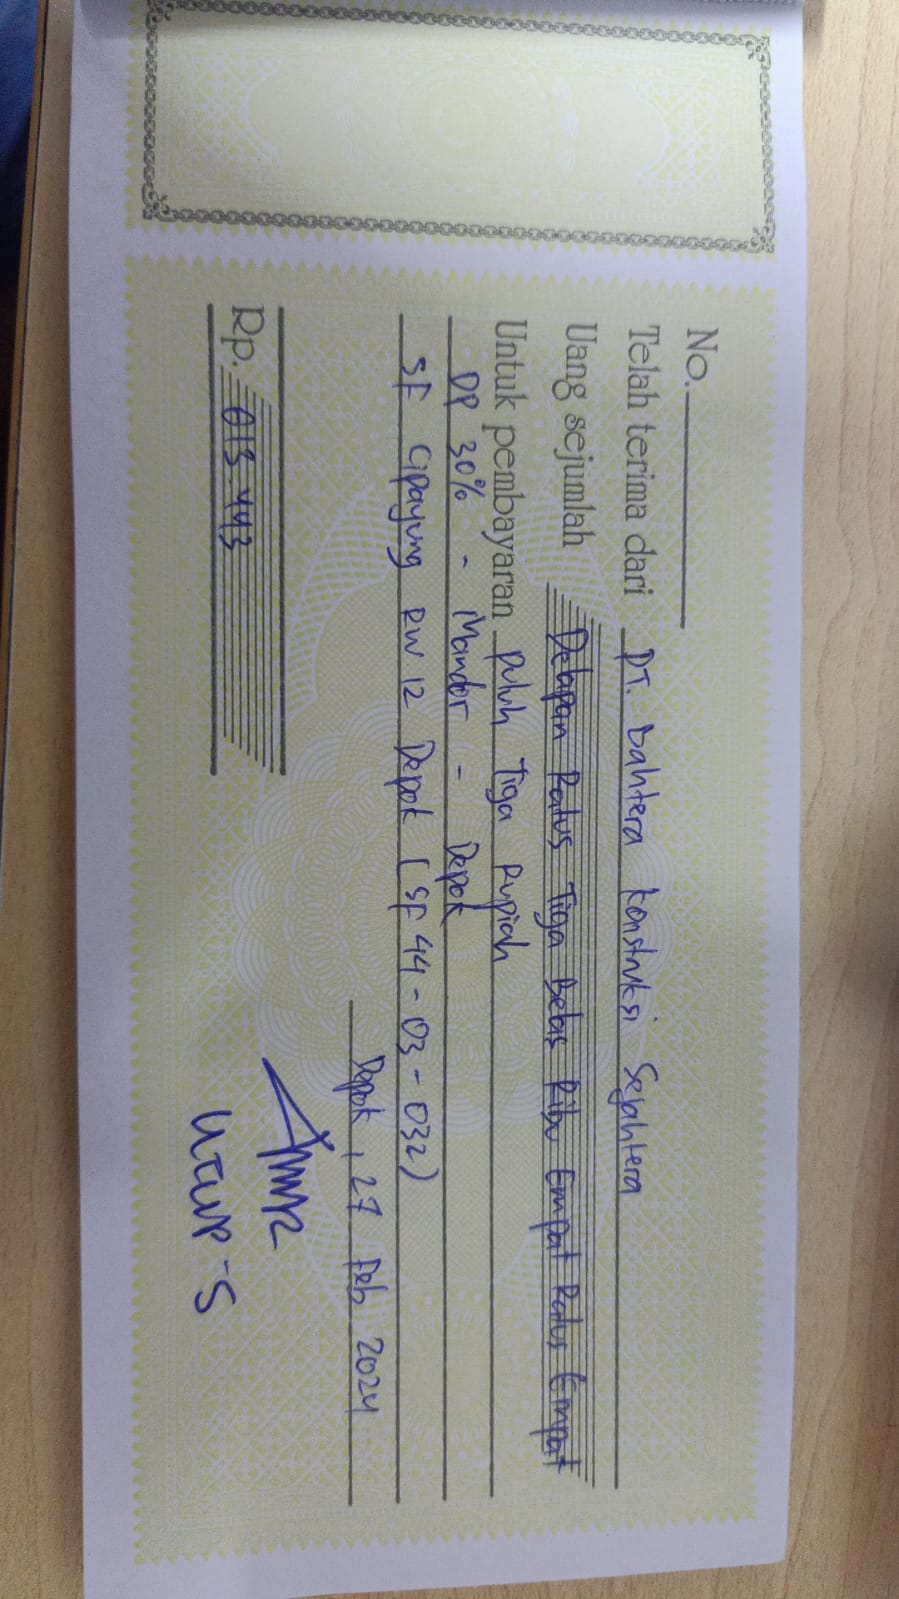 No.
Telah terima dari PT. Bahtera Konstruksi Sejahtera
Uang sejumlah Delapan Ratus Tiga Belas Ribu Empat Ratus Empat
Untuk pembayaran Puluh Tiga Rupiah
DP 30% - Mandor - Depok
SF Cipayung RW 12 Depok (SF 44 - 03 - 032)
Depok, 27 Feb 2024
Rp. 813.443